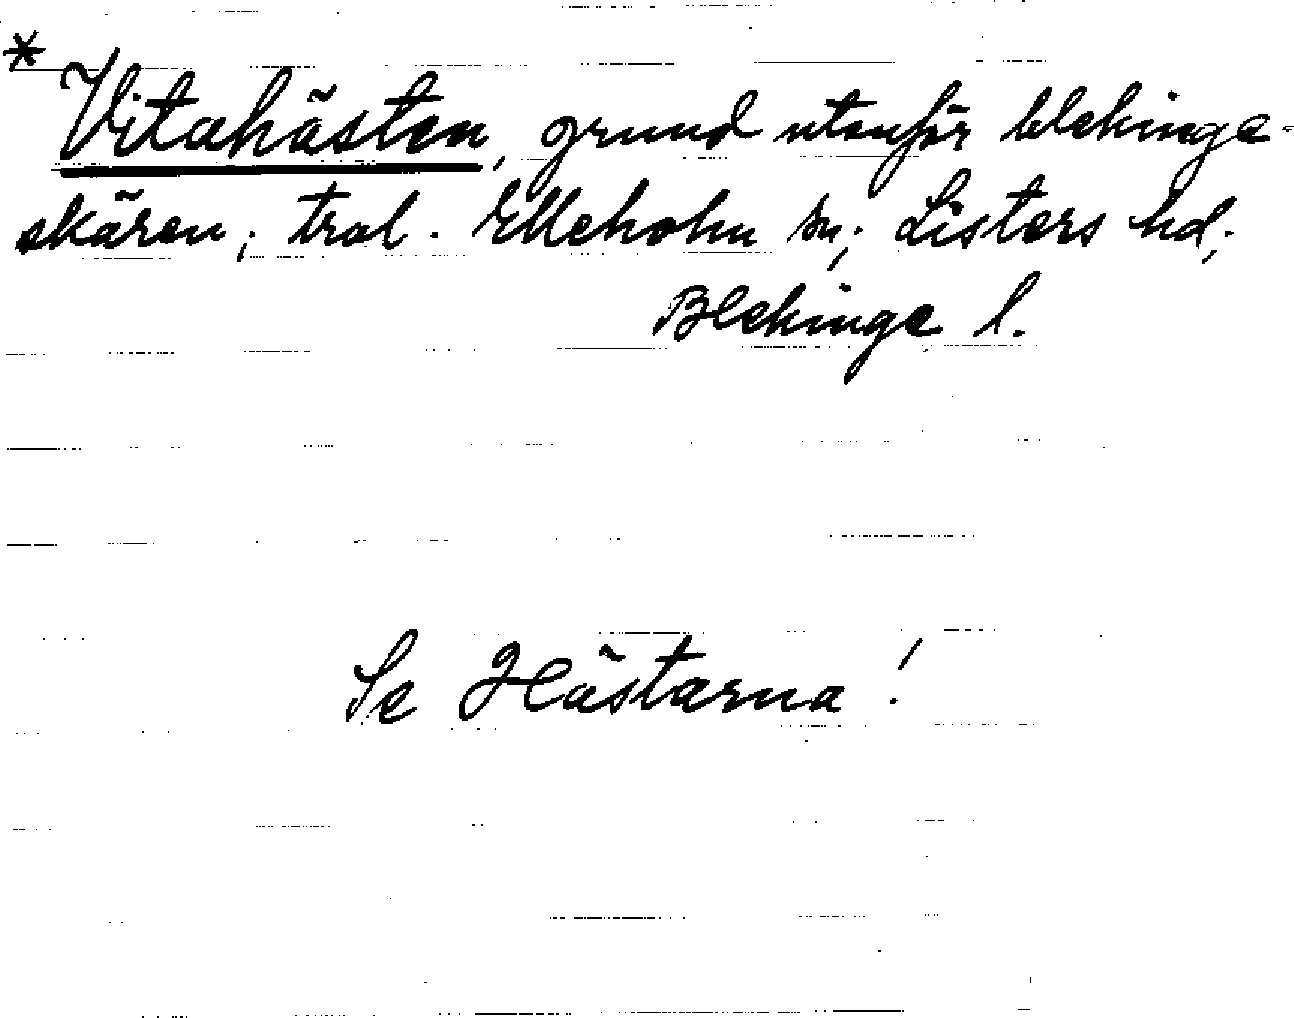 * Vitahästen, grund utanför blekinge-
skären; trol. Elleholm sn; Listers hd;
Blekinge l.
Se Hästarna!